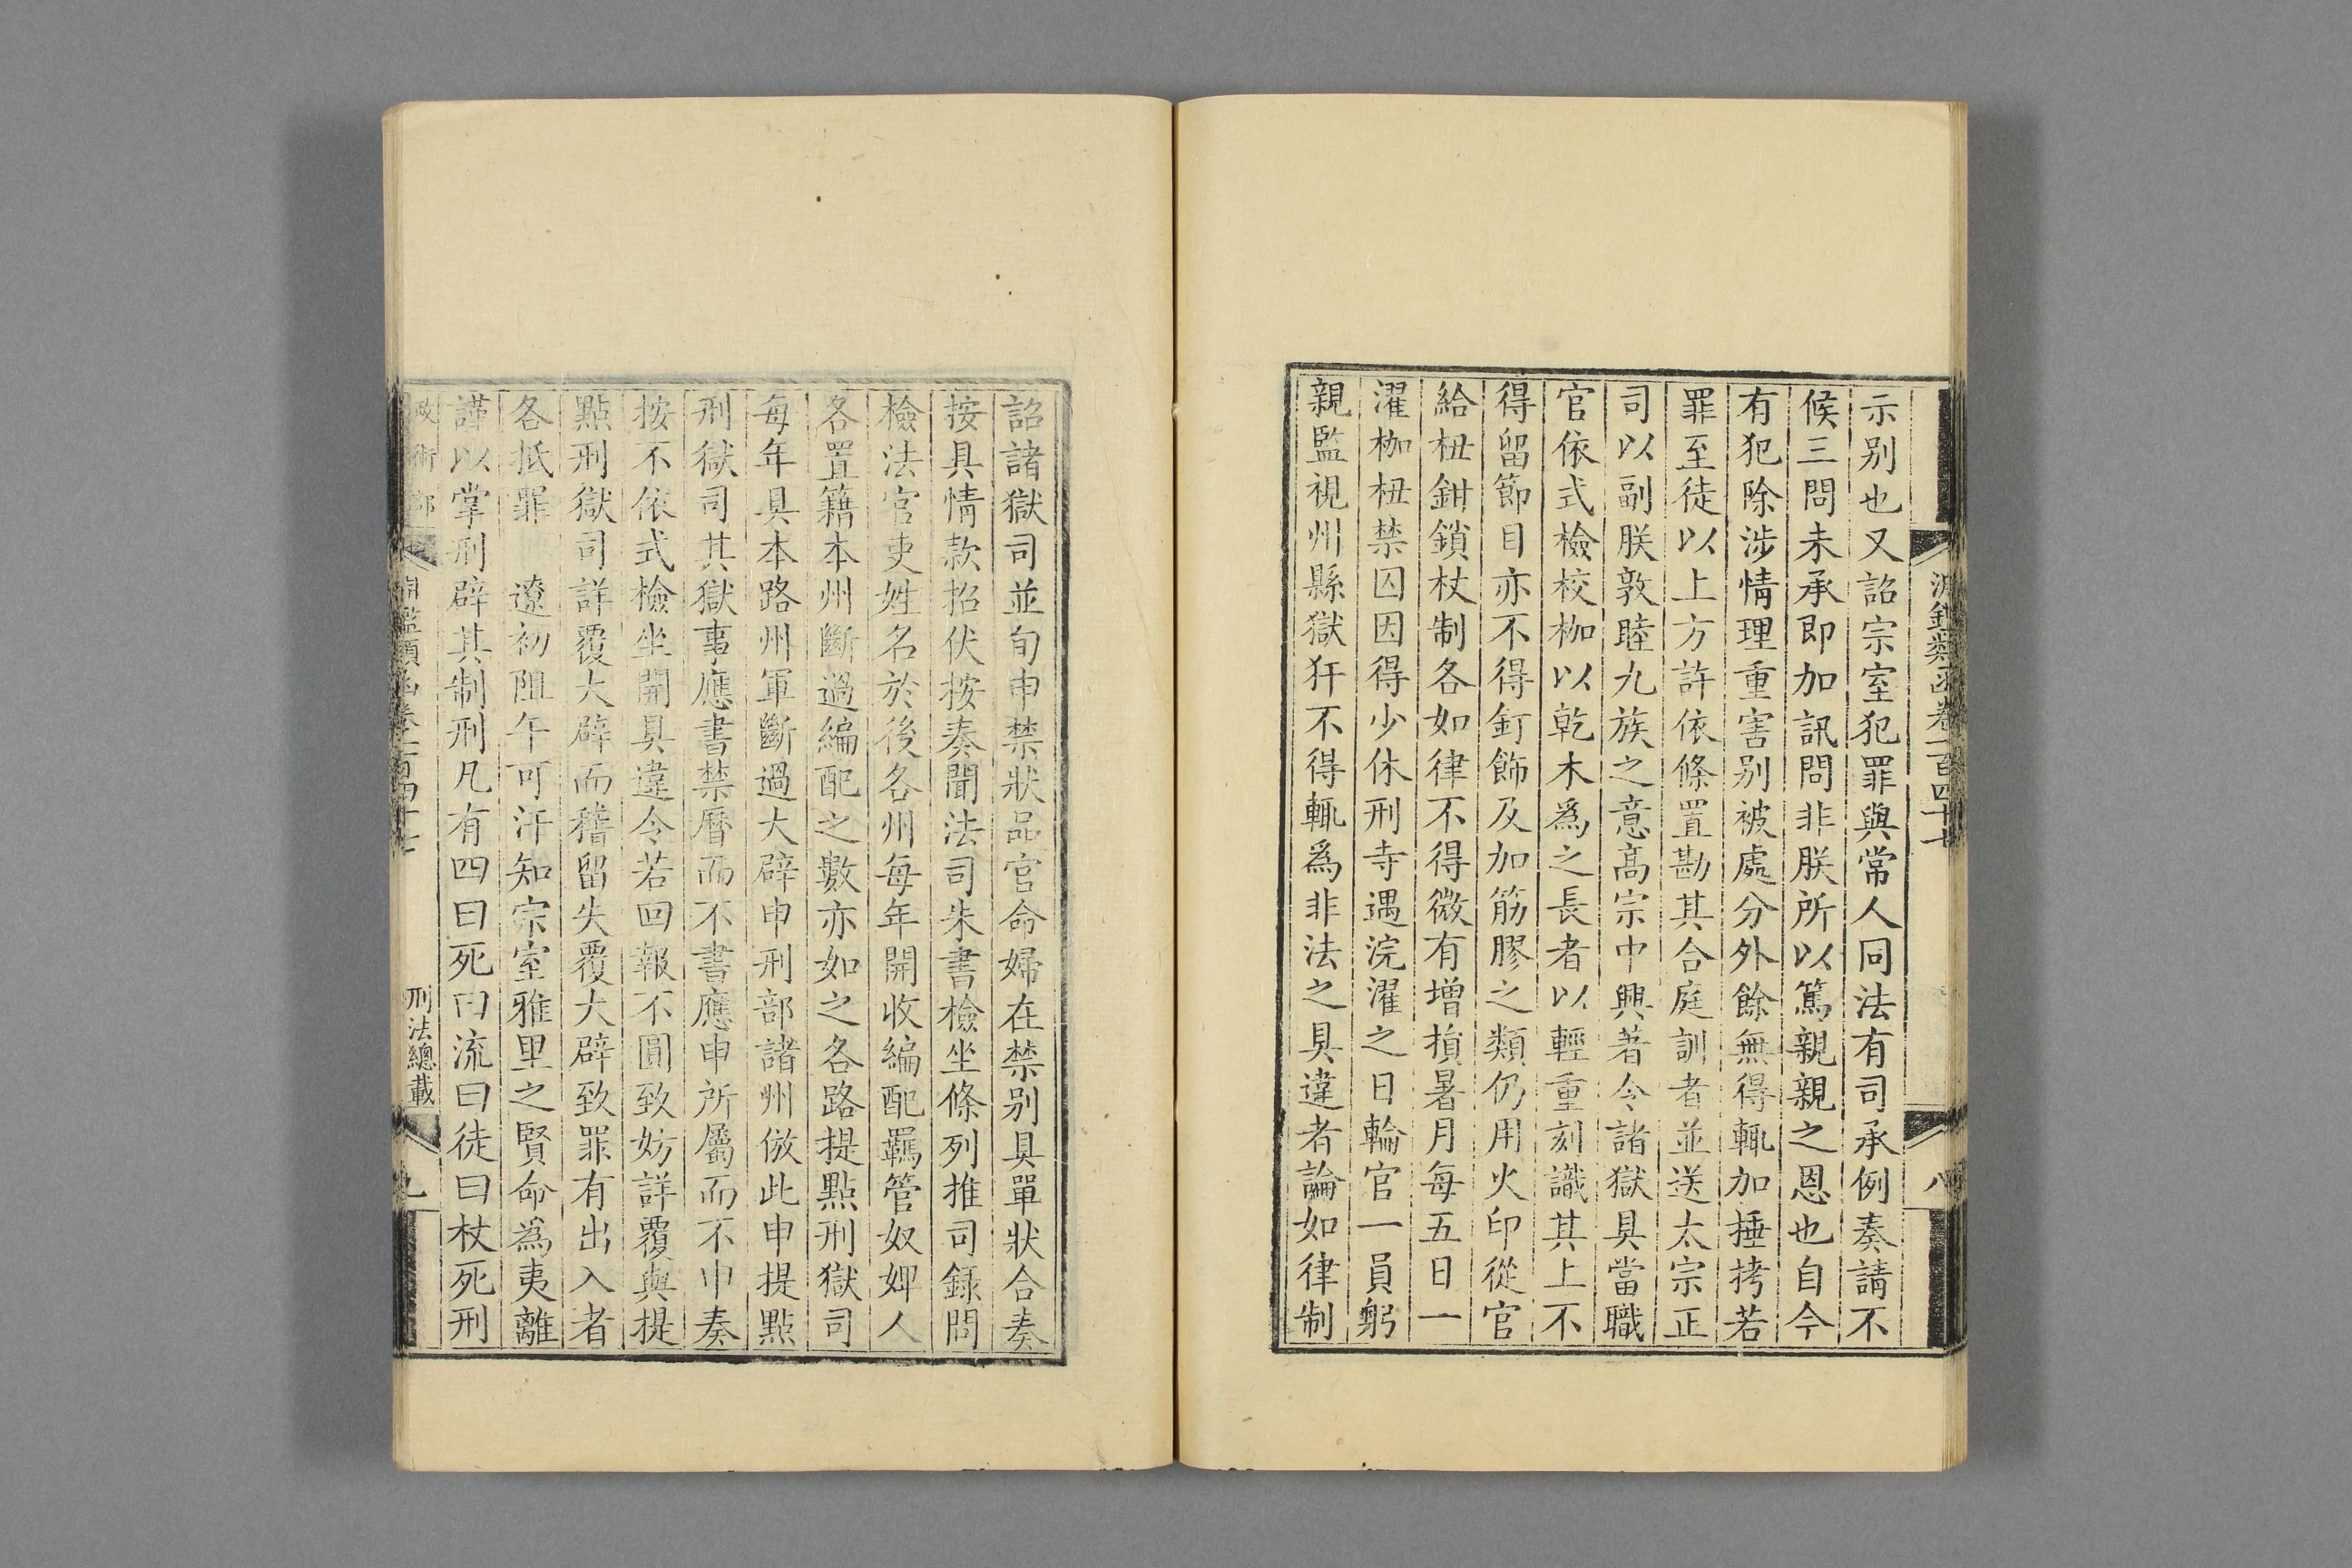 淵鑑類函卷一百四十七
八
示别也又詔宗室犯罪與常人同法有司承例奏請不
候三問未承即加訊問非朕所以篤親親之恩也自今
有犯除涉情理重害别被處分外餘無得輒加捶拷若
罪至徒以上方許依條置勘其合庭訓者並送太宗正
司以副朕敦睦九族之意高宗中興著令諸獄具當職
官依式檢校枷以乾木爲之長者以輕重刻識其上不
得留節目亦不得釘飾及加筋膠之類仍用火印從官
給杻鉗鎖杖制各如律不得微有增損暑月每五日一
濯枷杻禁囚因得少休刑寺遇浣濯之日輪官一員躬
親監視州縣獄犴不得輒爲非法之具違者論如律制
詔諸獄司並旬申禁狀品官命婦在禁别具單狀合奏
按具情款招伏按奏聞法司朱書檢坐條列推司錄問
檢法官吏姓名於後各州每年開收編配羈管奴婢人
各置籍本州斷過編配之數亦如之各路提點刑獄司
每年具本路州軍斷過大辟申刑部諸州倣此申提點
刑獄司其獄事應書禁曆而不書應申所屬而不申奏
按不依式檢坐開具違令若回報不圓致妨詳覆與提
點刑獄司詳覆大辟而稽留失覆大辟致罪有出入者
各抵罪　遼初阻午可汗知宗室雅里之賢命爲夷離
謹以掌刑辟其制刑凡有四曰死曰流曰徒曰杖死刑
政術部
淵鑑類函卷一百四十七
刑法總載
九